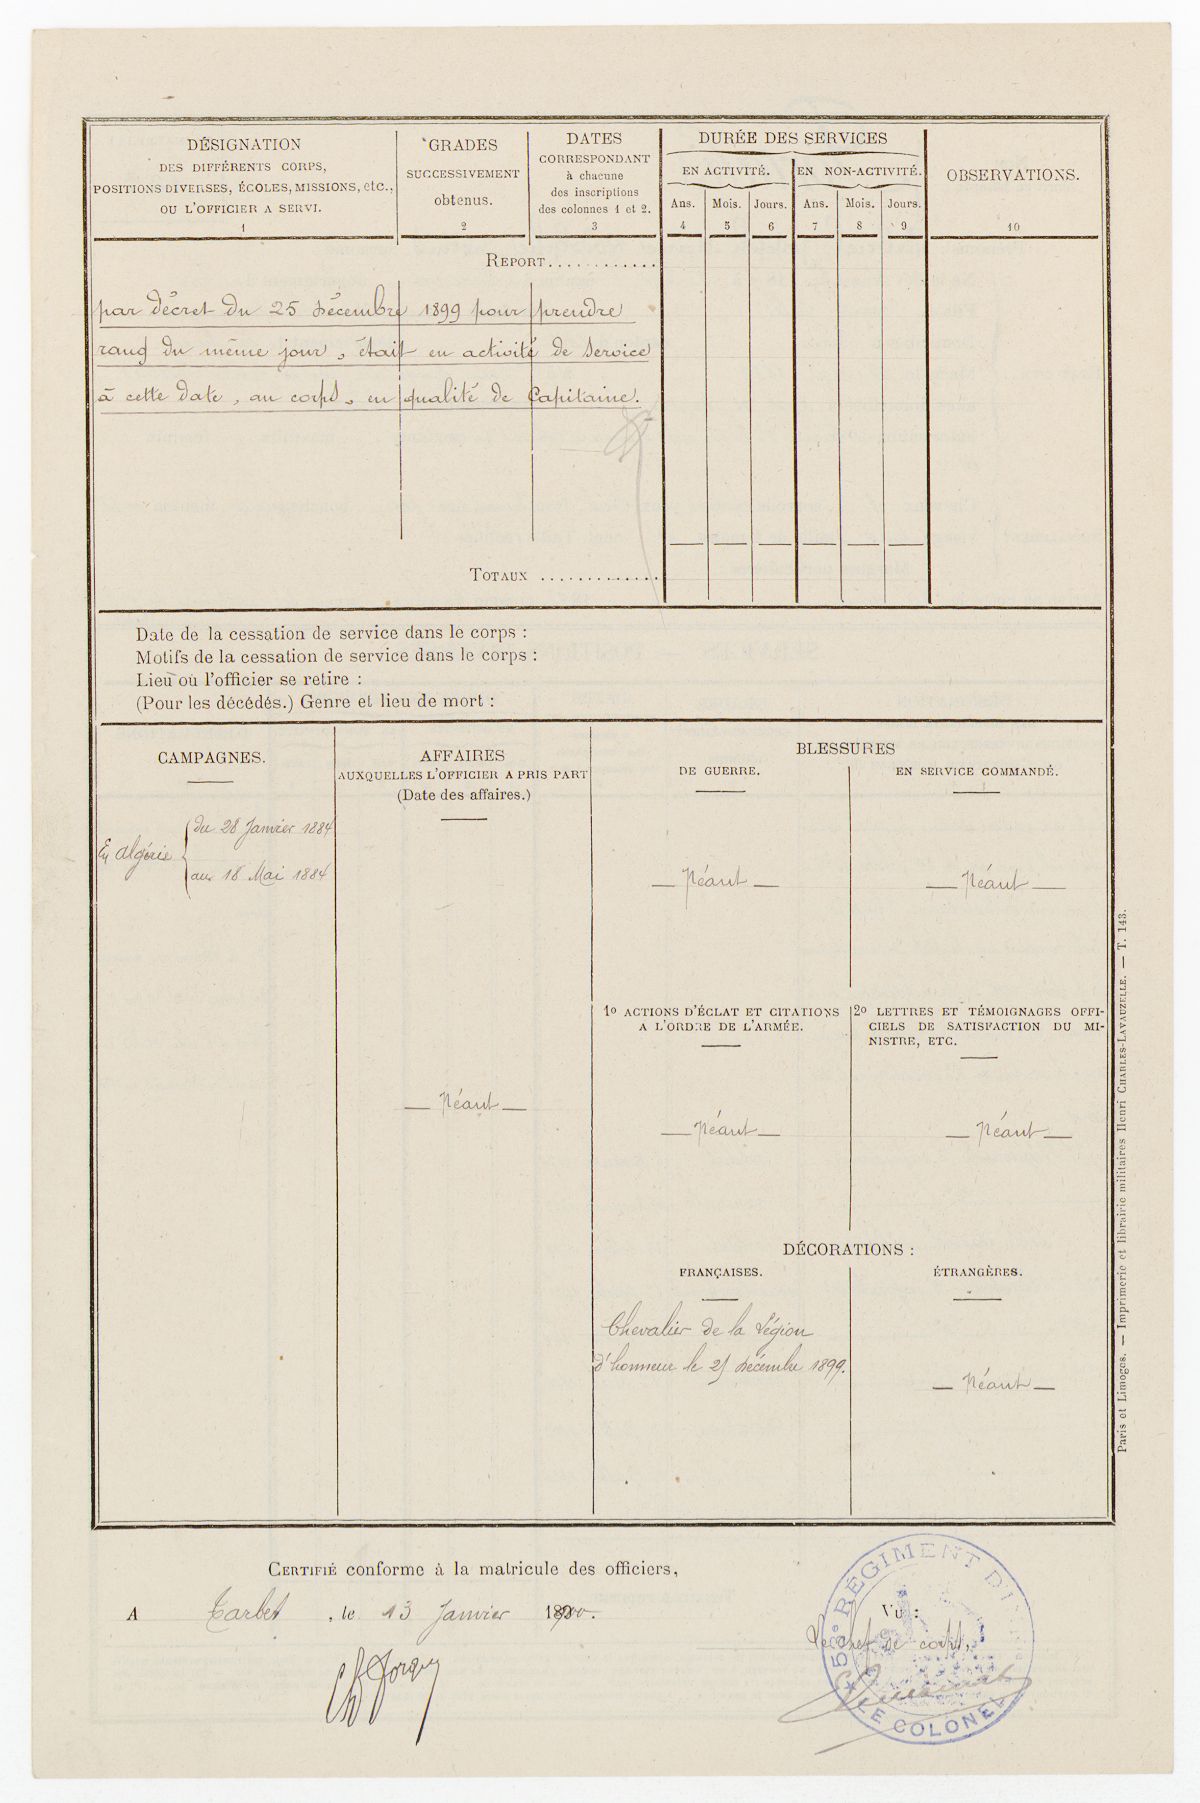 DÉSIGNATION
DES DIFFÉRENTS CORPS,
POSITIONS DIVERSES, ÉCOLES, MISSIONS, etc.,
OU L'OFFICIER A SERVI.
1
GRADES
SUCCESSIVEMENT
obtenus.
2
DATES
CORRESPONDANT
à chacune
des inscriptions
des colonnes 1 et 2.
3
DURÉE DES SERVICES
EN ACTIVITÉ.
EN NON-ACTIVITÉ.
Ans. Mois. Jours. Ans. Mois. Jours.
4 5 6 7 8 9
OBSERVATIONS.
10
REPORT............
par décret du 25 Décembre 1899 pour prendre
rang du même jour, était en activité de service
à cette date, au corps, en qualité de Capitaine.
TOTAUX .............
Date de la cessation de service dans le corps :
Motifs de la cessation de service dans le corps :
Lieu où l'officier se retire :
(Pour les décédés.) Genre et lieu de mort :
CAMPAGNES.
En Algérie
du 28 Janvier 1884
au 18 Mai 1884
AFFAIRES
AUXQUELLES L'OFFICIER A PRIS PART
(Date des affaires.)
— Néant —
BLESSURES
DE GUERRE.
— Néant —
EN SERVICE COMMANDÉ.
— Néant —
1º ACTIONS D'ÉCLAT ET CITATIONS
A L'ORDRE DE L'ARMÉE.
— Néant —
2º LETTRES ET TÉMOIGNAGES OFFI-
CIELS DE SATISFACTION DU MI-
NISTRE, ETC.
— Néant —
DÉCORATIONS :
FRANÇAISES.
Chevalier de la Légion
d'honneur le 25 Décembre 1899.
ÉTRANGÈRES.
— Néant —
Paris et Limoges. — Imprimerie et librairie militaires Henri CHARLES-LAVAUZELLE. — T. 143.
CERTIFIÉ conforme à la matricule des officiers,
A Tarbes, le 13 Janvier 1900.
Vu :
Le chef de corps,
53º RÉGIMENT
LE COLONEL